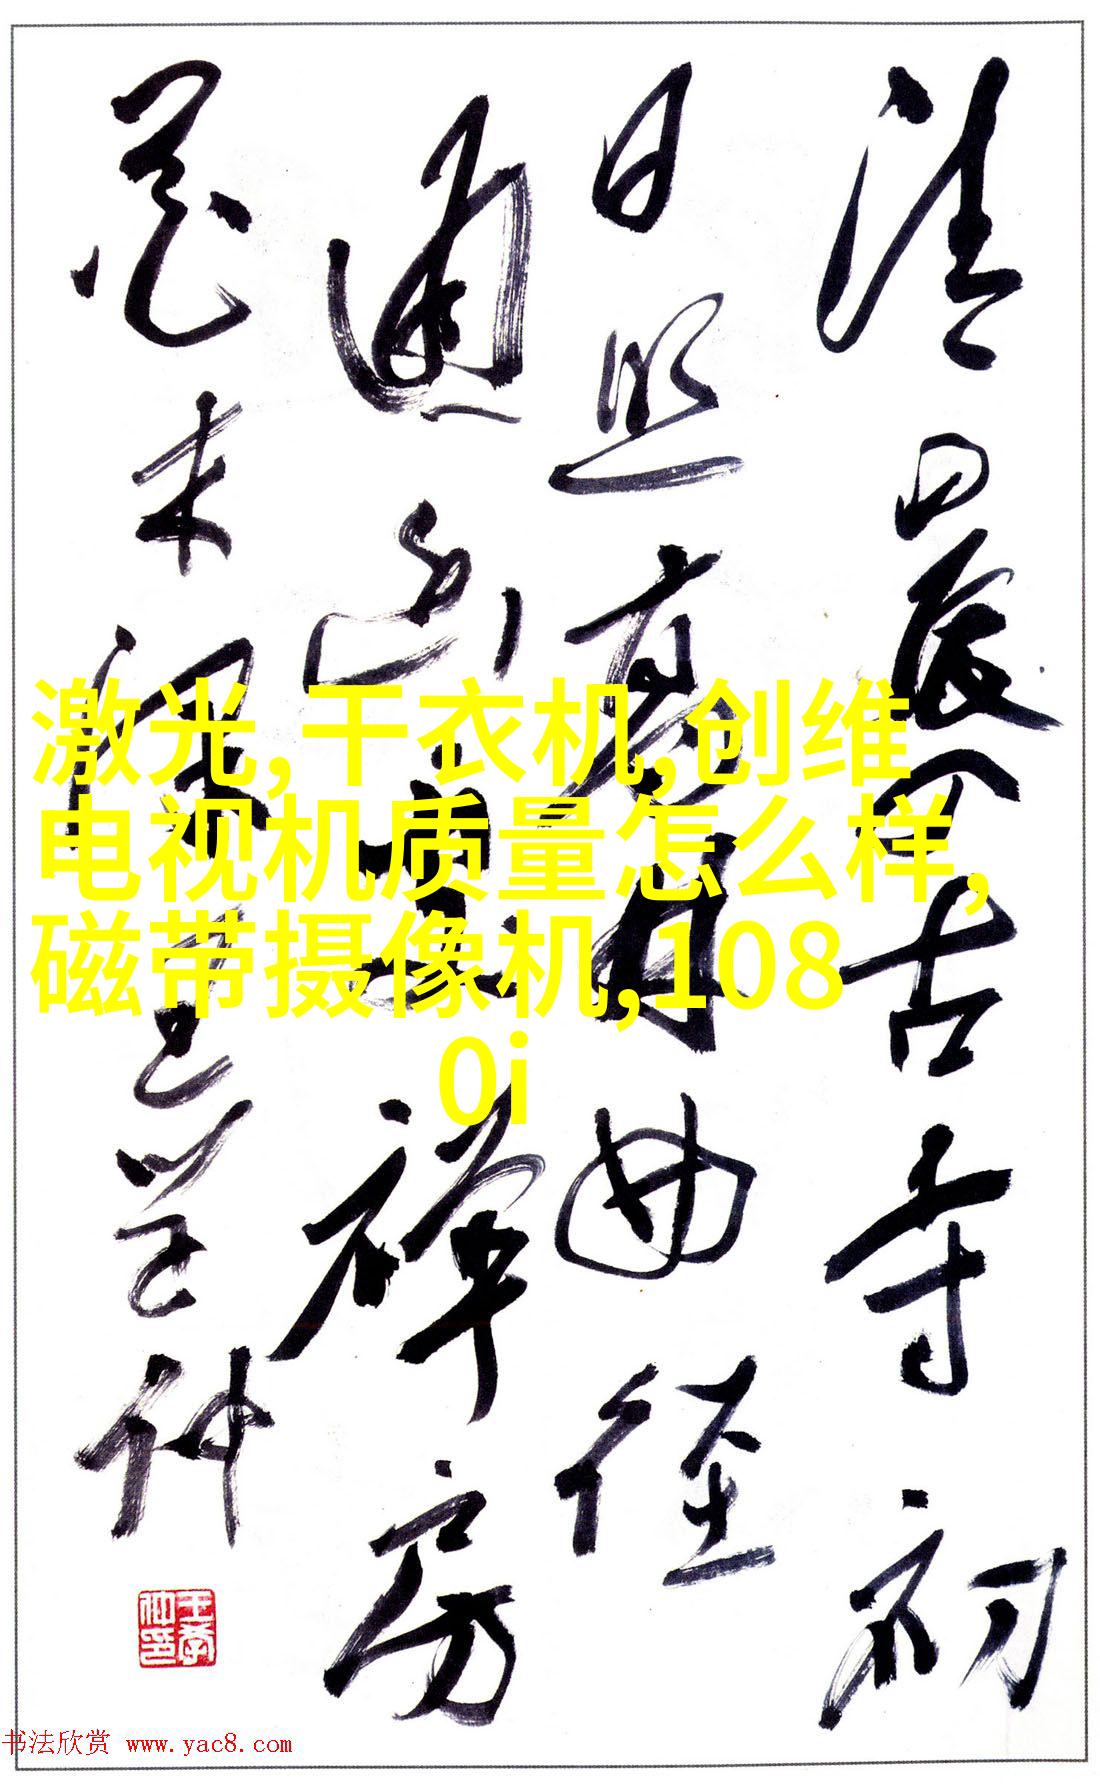 清晨入古寺初
日照高林曲径
通幽处禅房
花木深王学仲
激光,干衣机,创维
电视机质量怎么样,
磁带摄像机,108
0i
王学仲印
书法欣赏 www.yac8.com